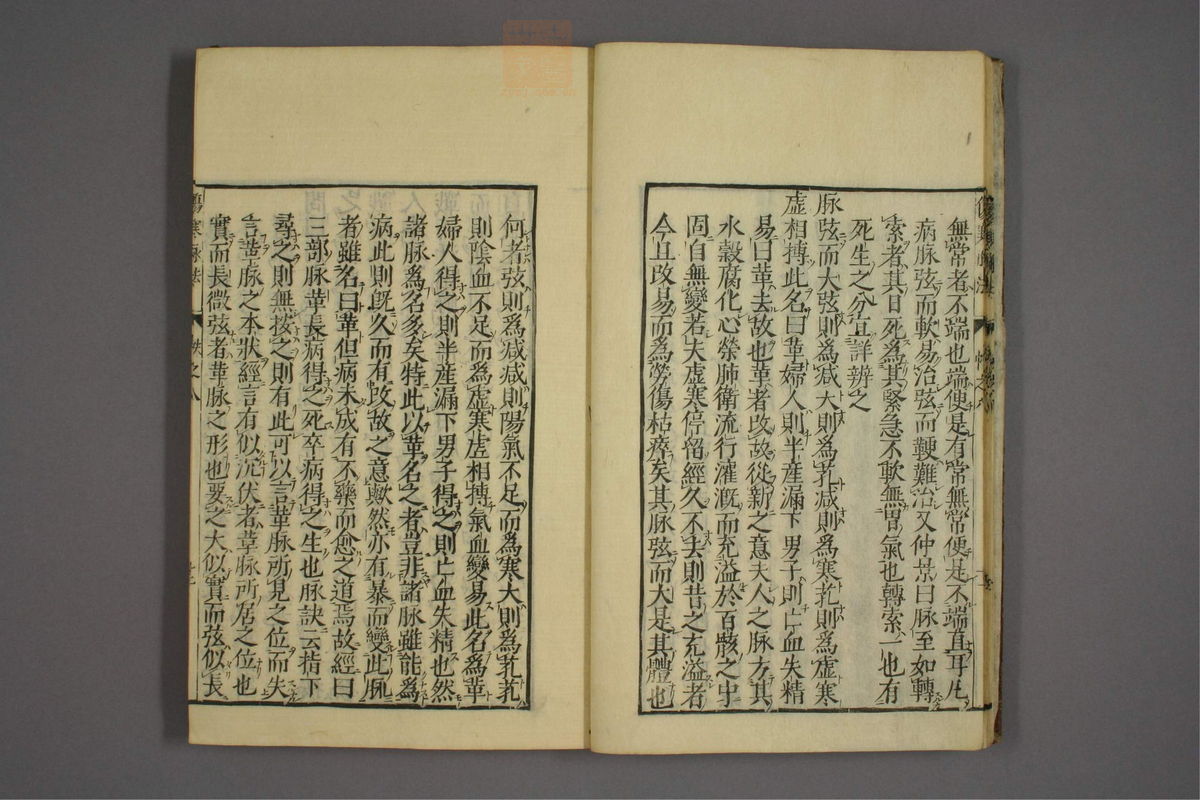 無常者不端也端便是有常無常便是不端直耳凡
病脉弦而軟易治弦而鞕難治又仲景曰脉至如轉
索者其日死爲其緊急不軟無胃氣也轉索一也有
死生之分宜詳辨之
脉弦而大弦則爲減大則爲芤減則爲寒芤則爲虛寒
虛相搏此名曰革婦人則半産漏下男子則亡血失精
易曰革去故也革者改故從新之意夫人之脉方其
水穀腐化心榮肺衛流行灌漑而充溢於百骸之中
固自無變若夫虛寒停留經久不去則昔之充溢者
今且改易而爲勞傷枯瘁矣其脉弦而大是其體也
何者弦則爲減減則陽氣不足而爲寒大則爲芤芤
則陰血不足而爲虛寒虛相搏氣血變易此名爲革
婦人得之則半産漏下男子得之則亡血失精也然
諸脉爲名多矣特此以革名之者豈非諸脉雖能爲
病此則旣久而有改故之意歟然亦有暴而變此脉
者雖名曰革但病未成有不藥而愈之道焉故經曰
三部脉革長病得之死卒病得之生也脉訣云指下
尋之則無按之則有此可以言革脉所見之位而失
言革脉之本狀經言有似沉伏者革脉所居之位也
實而長微弦者革脉之形也要之大似實而弦似長
傷寒脉法